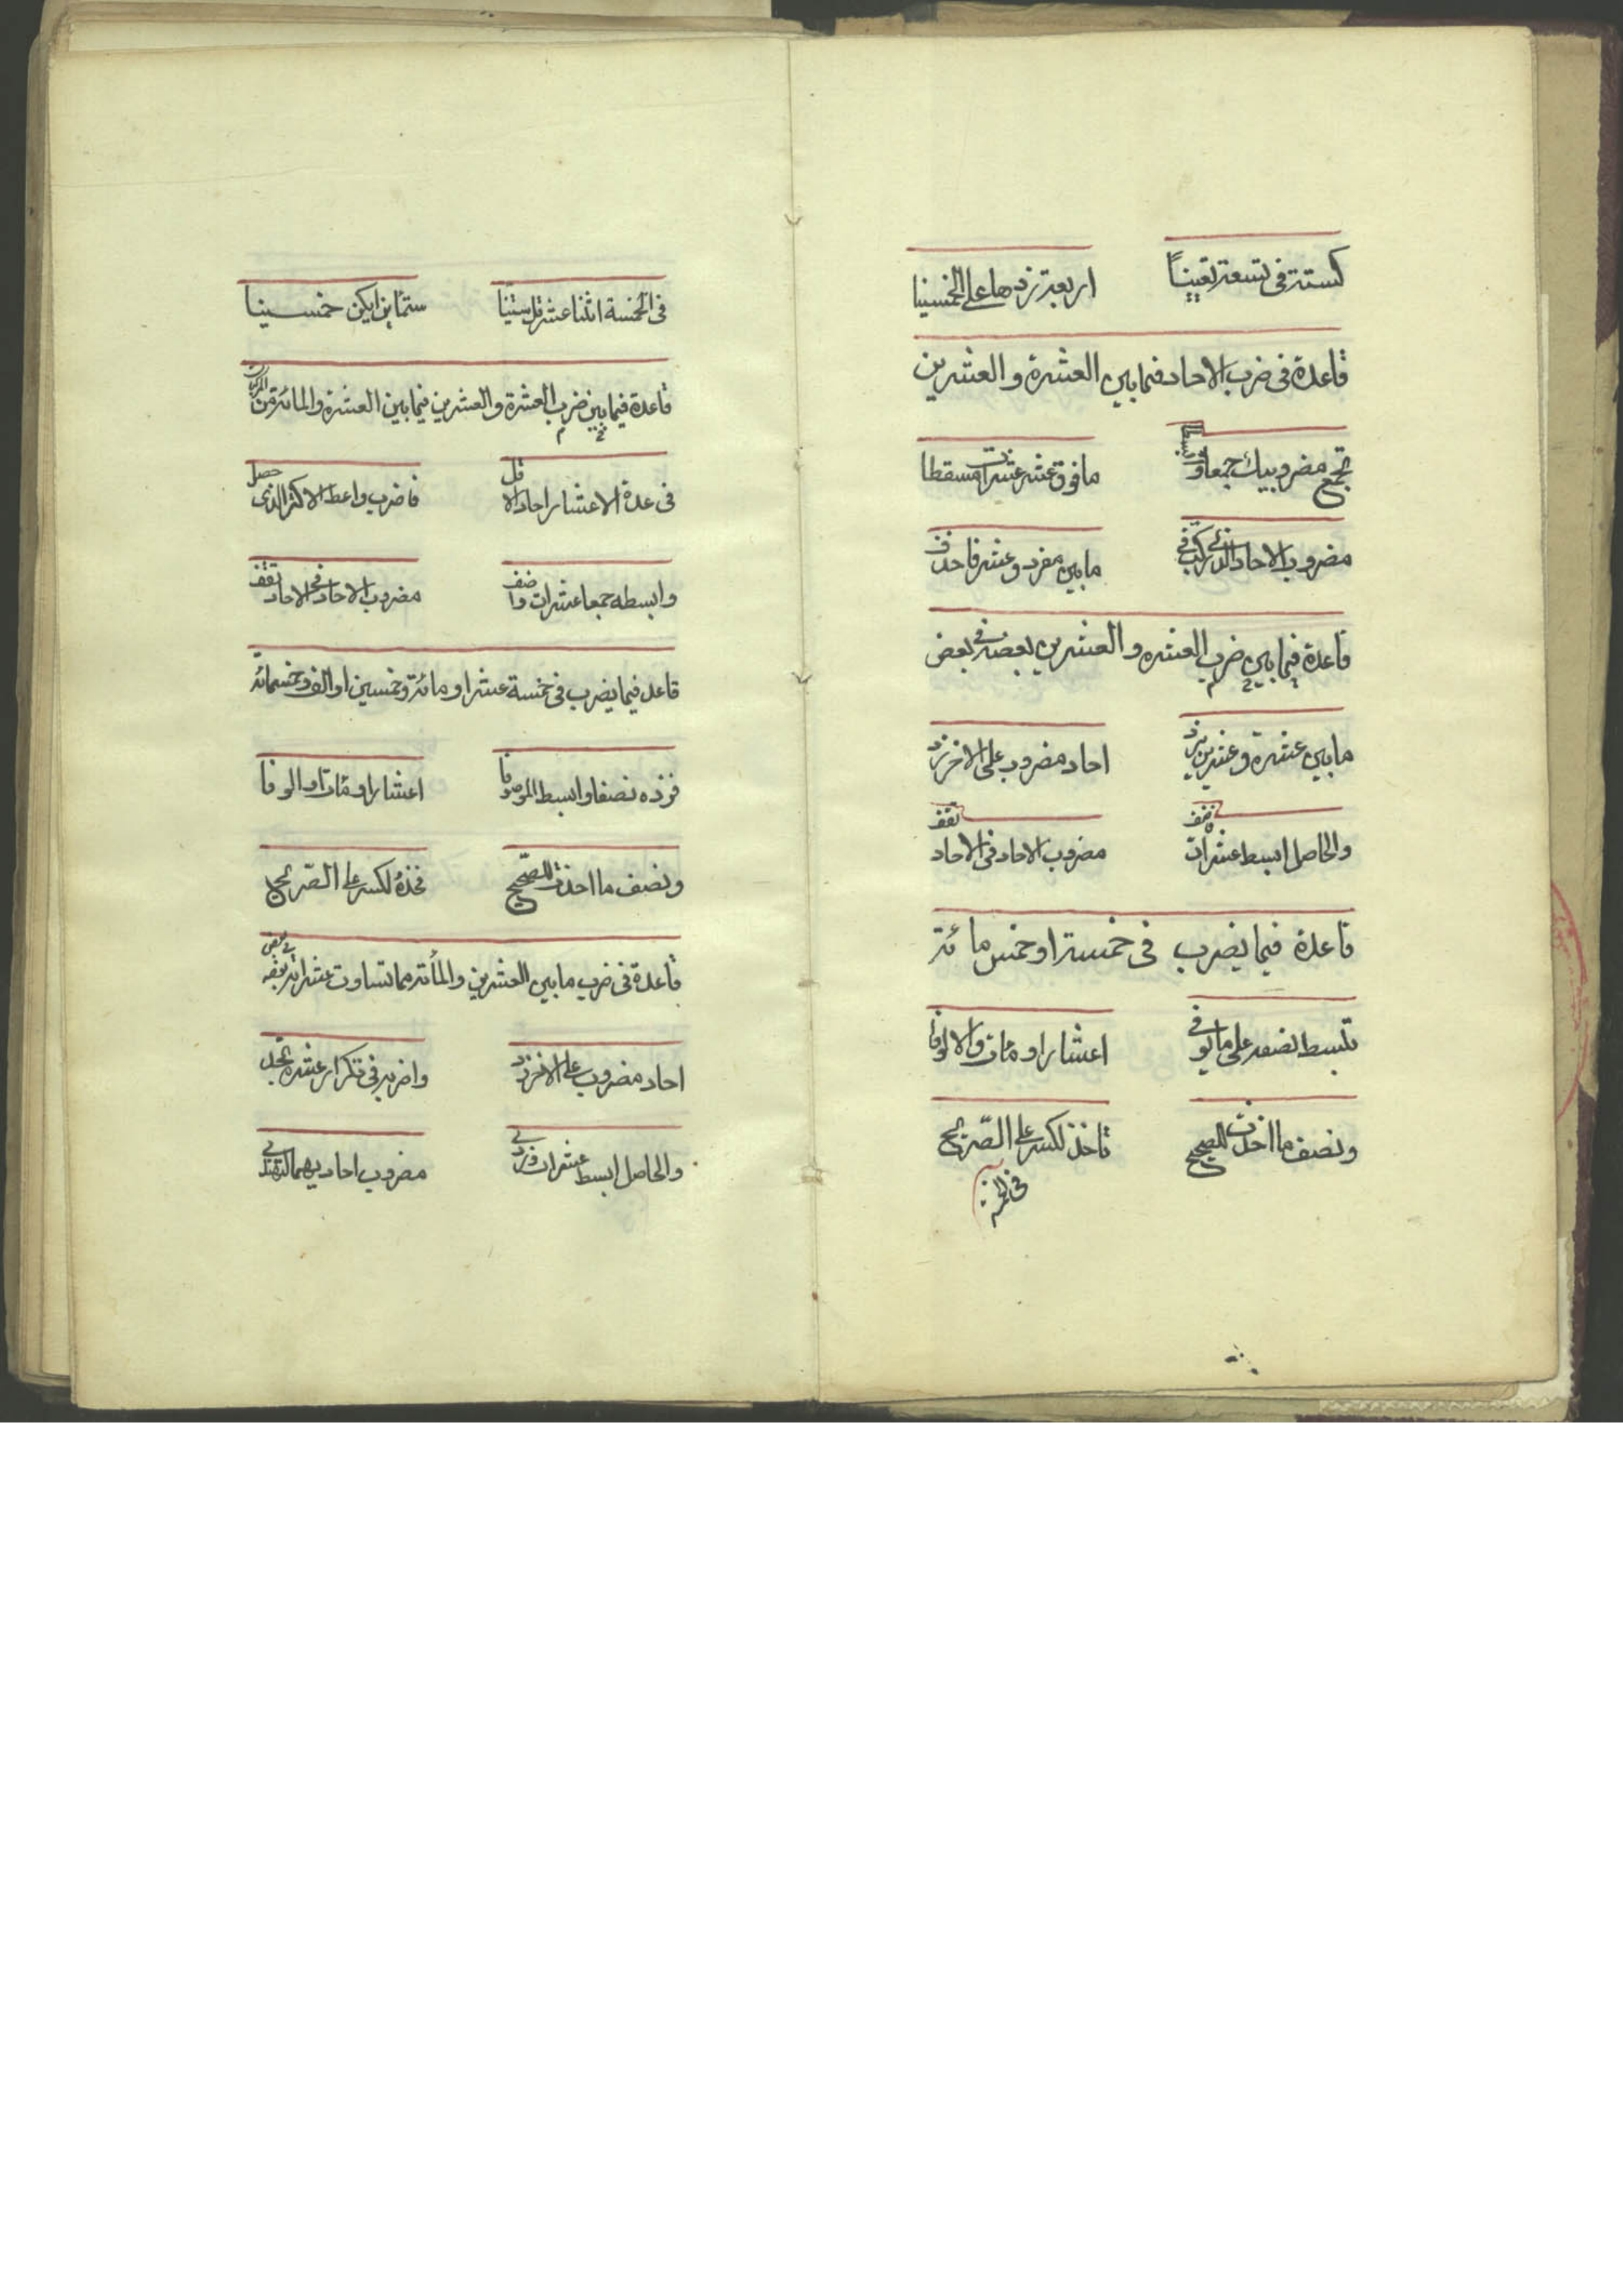 كستة في تسعة تعيينًا اربعة زدها على الخمسينا
قاعدة فى ضرب الاحاد فيما بين العشرة والعشرين
تجمع مضروبيك جمعا وابسطا ما فوق عشر عشرات مسقطا
مضروب الاحاد الذى تركب فى ما بين مفرد وعشر فاحذف
قاعدة فيما بين ضرب العشره والعشرين بعضه فى بعض
ما بين عشرة وعشرين يرد احاد مضروب على الاخر زد
والحاصل ابسط عشرات واضف مضروب الاحاد فى الاحاد تقف
قاعدة فيما يضرب فى خمسة او خمس مائة
تبسط نصفه على ما يوفى اعشارا ومئات والالوفا
ونصف ما اخذت للصحيح تاخذ لكسر على الصريح
فى الخمسة
فى الخمسة اثنا عشر قل ستينا ستمأة ان يكن خمسينا
قاعدة فيما بين ضرب العشرة والعشرين فيما بين العشرة والمائة من المركبات
فى عدة الاعشار احاد الاقل فاضرب واعط الاكثر الذى حصل
وابسطه جمعا عشرات واضف مضروب الاحاد فى الاحاد تقف
قاعد فيما يضرب فى خمسة عشر او مائة وخمسين او الف وخمسمائة
فزده نصفا وابسط الموصوفا اعشارا ومئات او الوفا
ونصف ما اخذت للصحيح فخذهُ لكسر على الصريح
قاعدة فى ضرب ما بين العشرين والمأة مما تساوت عشراته بعضه فى بعض
احاد مضروب على الاخر زد واضربه فى تكرار عشرة تجد
والحاصل ابسط عشرات وزد فى مضروب احاديهما لتهتدى